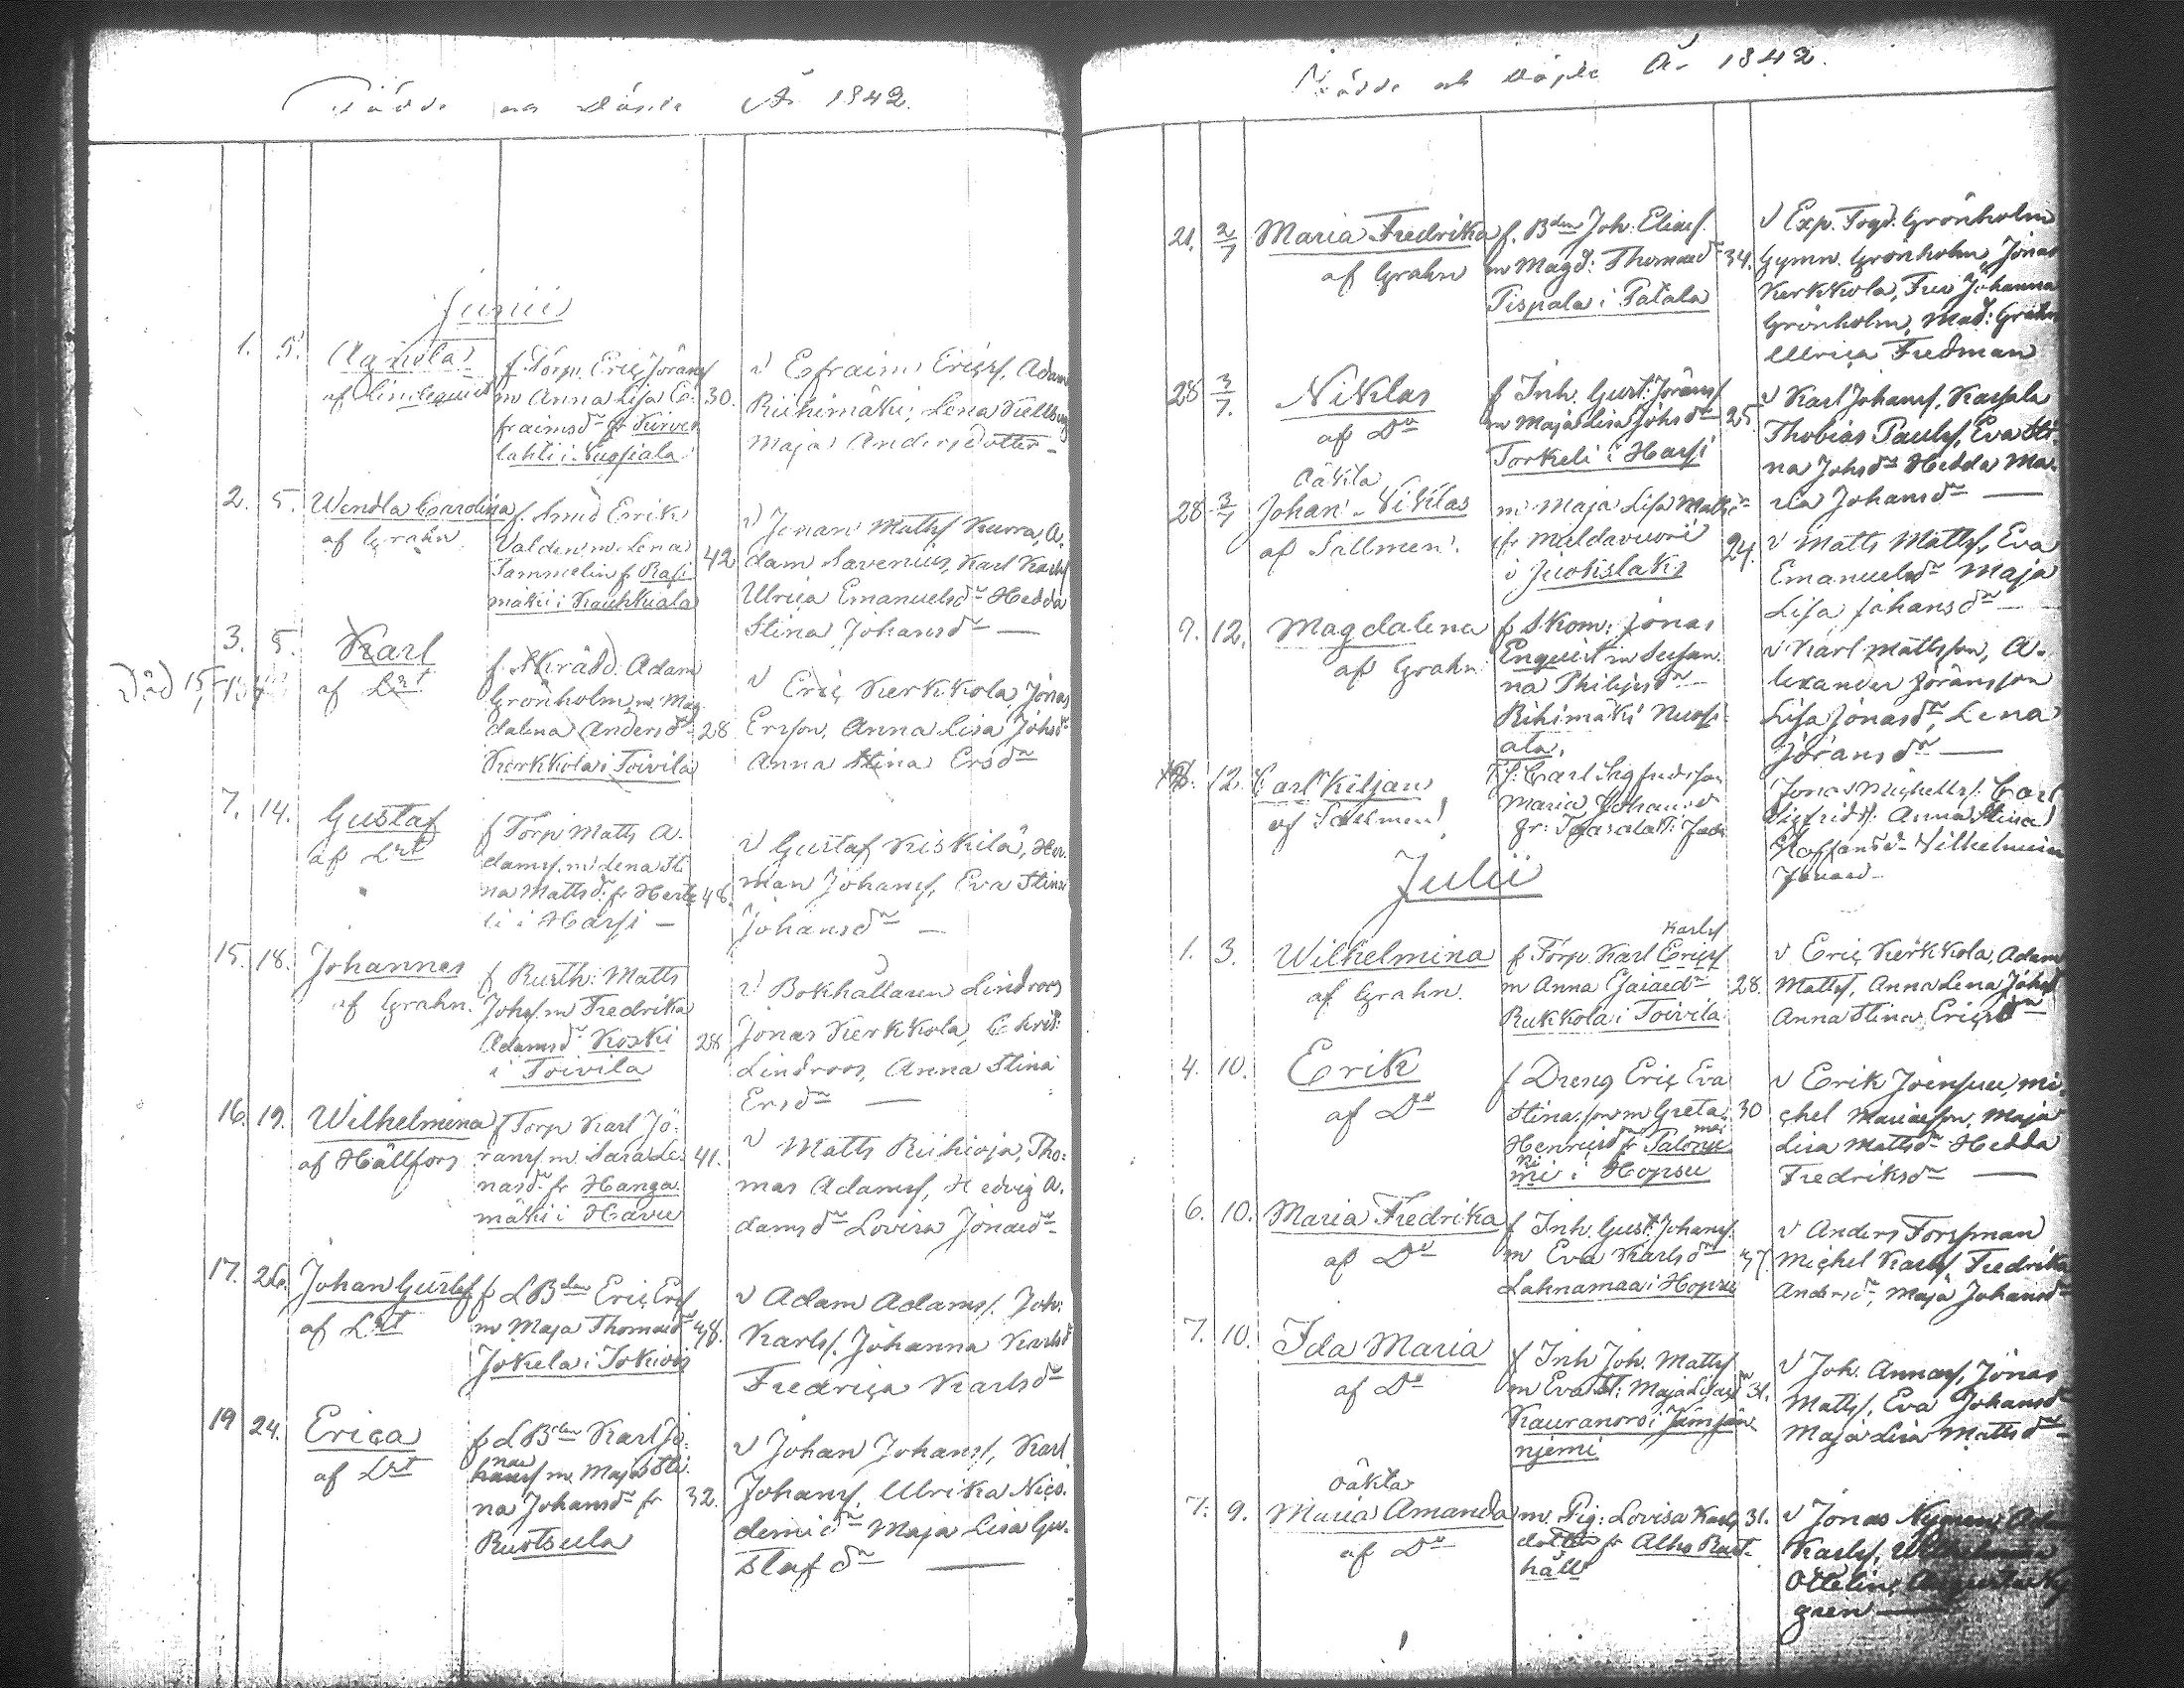 Födde och Döpte År 1842.
Junii
1. 5.
af Lindequist
f. Torp. Eriç Jöransf
m Anna Lisa E= 30.
fraimsdr fr Kirves
lahti i Nuosiala
v Efraim Eriçsf, Adam
Riihimäki, Lena Kellberg
Maja Andersdotter –
2. 5. Wendla Carolina
af Grahn
f. Smed Errik
Valden m. Lena
Tammelin fr Rasi 42
mäki i Kauhkiala
v Jonan Mattsf Kurra, A.
dam Savenius, Karl Karlsf
Ulrica Emanuelsdr Hedda
Stina Johansdr —
3. 5. Karl
af Dnt
Död 15
f. Skrädd. Adam
Grönholm m. Mag
dalena Andersdr 28
Kerkkola i Toivila
v Eriç Kerkkola, Jonas
Ersson, Anna Lisa Johsdr
Anna Stina Ersdr
7. 14. Gustaf
af Dnt
f Torp Matts A.
damsf. m Lena Sti
na Mattsdr. fr Hertt 48.
li i Harsi –
v Gustaf Kiskilä, Her.
man Johansf, Eva Stina
Johansdr –
15. 18. Johannes
af Grahn.
f Rusth: Matts
Johsf. m Fredrika
Adamsdr Koski 28
i Toivila
v Bokhållaren Lindroos
Jonas Kerkkola, Christ:
Lindroos, Anna Stina
Ersdr —
16. 19. Wilhelmina
af Hällfors
f Torp Karl Jö=
ransf. m. Sara Le= 41.
nasdr. fr Hanga
mäki i Havu
v Matts Riihioja, Tho:
mas Adamsf, Hedvig A.
damsdr Lovisa Jonasdr
17. 26. Johan Gustaf
af Dnt
f L Bden Eriç Ersf
m Maja Thomasdr 48.
Jokela i Jokiois
v Adam Adamsf. Joh:
Karlsf. Johanna Karlsd
Fredriça Karlsdr
19 24. Eriça
af Dnt
f L Bden Karl Jo=
nas
hansf m. Maja Sti=
na Johansdr fr 32.
Ruotsula
v Johan Johansf, Karl
Johansf, Ulrika Niço.
demidr Maja Lisa Gu.
stafdr —
Födde och Döpte År 1842.
21. 2/7 Maria Fredrika
af Grahn
f. Bden Joh: Eliasf.
m Magd: Thomasdr 34.
Pispala i Patala
v Exp. Fogd. Grönholm
Gymn. Grönholm, Jonas
Kerkkola, Fru Johanna
Grönholm, Mad: Grahn
Ulriça Fredman
28 3/7. Niklas
af Do
f Inh. Gust: Jöransf
m Maja Lisa Johsdr 25
Torkeli i Harsi
v Karl Johansf, Karpela
Thobias Paulsf, Eva Sti=
na Johsdr Hedda Ma=
ria Johansdr —
28 3/7 Oäkta
Johan Niklas
af Sallmen.
m Maja Lisa Mattsdr
fr Muldavuori 24.
i Juokslaks
v Matts Mattsf, Eva
Emanuelsdr Maja
Lisa Johansdr —
9. 12. Magdalena
af Grahn
f Skom: Jonas
Enquist m Susan
na Philipsdr
Rihimäki Nuosi
ala,
v Karl Mattsson, A.
lexander Jöransson
Lisa Jonasdr, Lena
Jöransdr —
12. Carl Kiljan
af Salmen
f: Carl Sigfridsson
Maria Johansd
Jonas Michelsf. Carl
Sigfridsf. Anna Stina
Staffansd. Vilhelmina
Jonasd
Julii
1. 3. Wilhelmina
af Grahn.
Karlsf
f Torp. Karl Eriçsf
m Anna Esaiaedr 28.
Rukkola i Toivila
v Eriç Kerkkola, Adam
Mattsf, Anna Lena Johsd
Anna Stina Eriçsdr
4. 10. Erik
af Do
f Dreng Eriç Eva
Stina. son m Greta 30
Henricsdr fr Palonie
mi i Hopsu
v Erik Joensuu, Mi=
çhel Mariaeson, Maja
Lisa Mattsdr Hedda
Fredriksdr —
6. 10. Maria Fredrika
af Do
f Inh. Gust. Johansf.
m Eva Karlsdr 47
Lahnamaa i Hopsu
v Anders Forssman
Miçhel Karlsf Fredrika
Andersdr, Maja Johansdr
7. 10. Ida Maria
af Do
f Inh Joh. Mattsf
m Eva St: Maja Lisasdr 31.
Kauranoro i Jämsän
njemi
v Joh. Annasf, Jonas
Mattsf. Eva Johansdr
Maja Lisa Mattsdr
7. 9. Oäkta
Maria Amanda
af Do
m. Pig: Lovisa Karls 31.
dotter fr Alho Rust=
håll
v Jonas Nygren, Adam
Karlsf, Wilhelmina
Ottelin, Augusta Ny
gren —